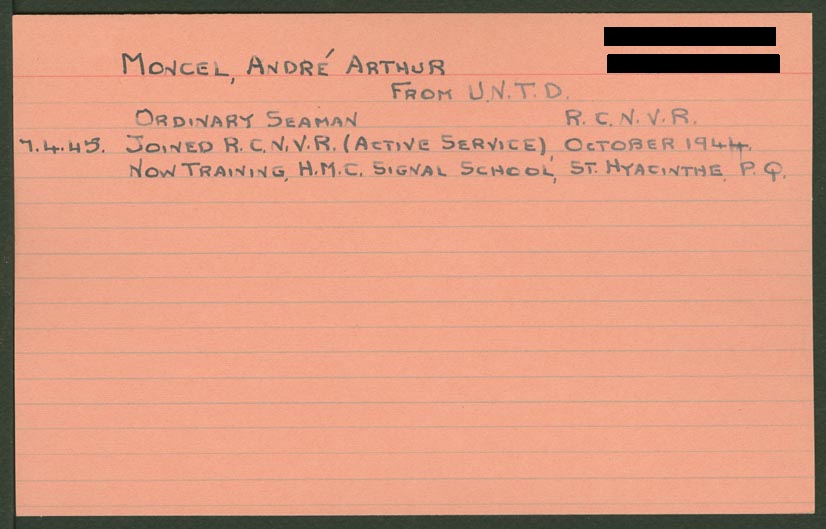 MONCEL, ANDRÉ ARTHUR
FROM U.N.T.D.
ORDINARY SEAMAN R.C.N.V.R.
7.4.45. JOINED R.C.N.V.R. (ACTIVE SERVICE), OCTOBER 1944.
NOW TRAINING, H.M.C. SIGNAL SCHOOL, ST. HYACINTHE, P.Q.